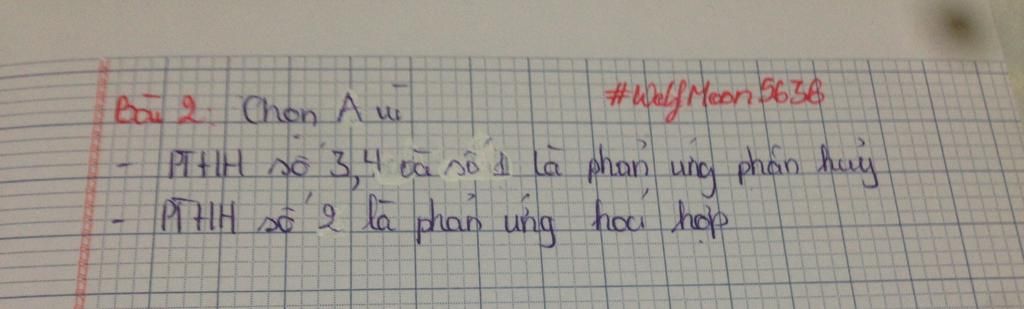 Bài 2: Chọn A vì #WolfMoon5636
- PTHH số 3, 4 và số 1 là phản ứng phân huỷ
- PTHH số 2 là phản ứng hoá hợp